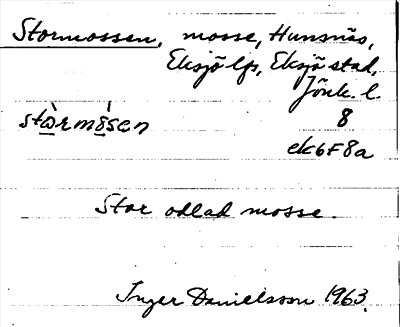 Stormossen, mosse, Hunsnäs,
Eksjö lfs, Eksjö stad,
Jönk. l.
8
stòrmǫ́sen
ek 6F8a
Stor odlad mosse.
Inger Danielsson 1963.